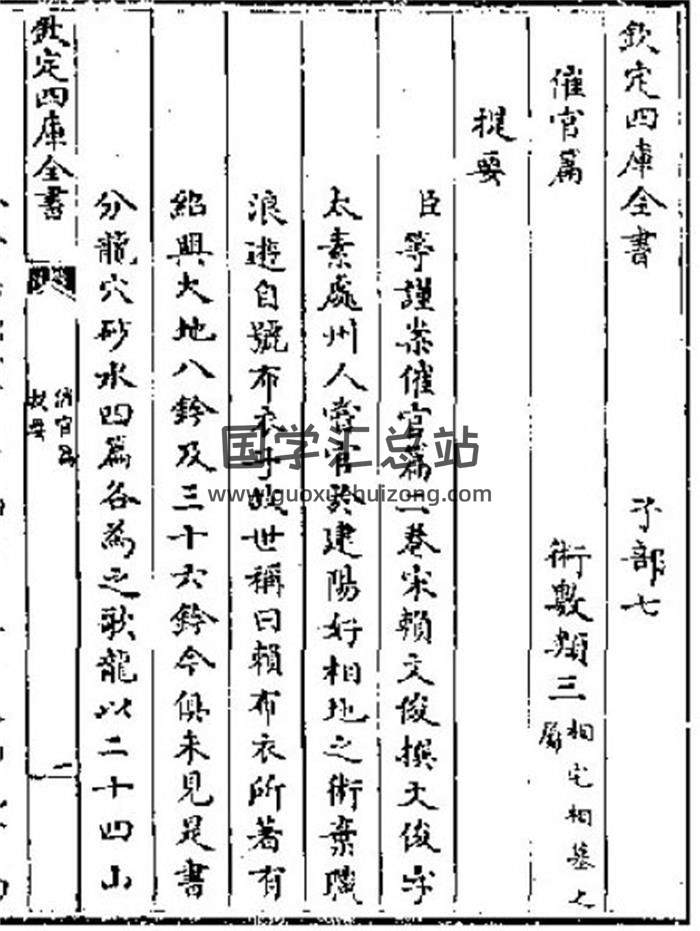 欽定四庫全書
子部七
催官篇
術數類三相宅相墓之屬
提要
臣等謹案催官篇二卷宋賴文俊撰文俊字
太素處州人嘗官於建陽好相地之術棄職
浪遊自號布衣子故世稱曰賴布衣所著有
紹興大地八鈐及三十六鈐今俱未見是書
分龍穴砂水四篇各為之歌龍以二十四山
欽定四庫全書
催官篇
提要
国学汇总站
www.guoxuehuizong.com